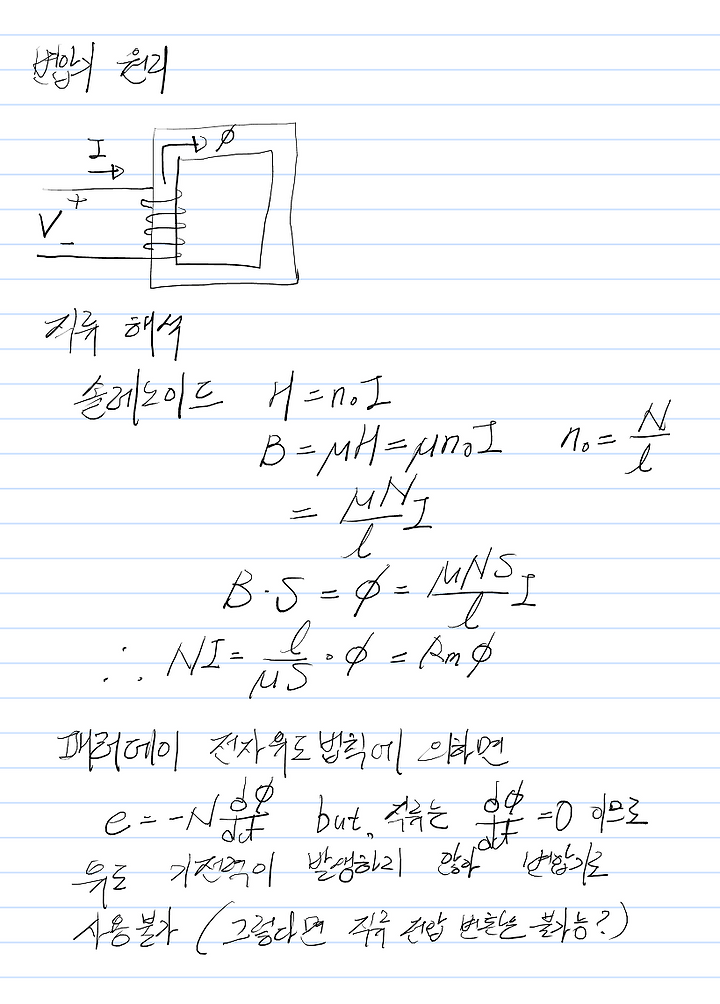 변압기 원리
ϕ
I
+
V
-
직류 해석
솔레노이드 H = n₀I
B = μH = μn₀I n₀ = N/l
= μN/l I
B·S = ϕ = μNS/l I
∴ NI = l/μS · ϕ = Rmϕ
패러데이 전자유도법칙에 의하면
e = -N dϕ/dt but, 직류는 dϕ/dt = 0 이므로
유도 기전력이 발생하지 않아 변압기로
사용불가 (그렇다면 직류 전압 변환은 불가능?)